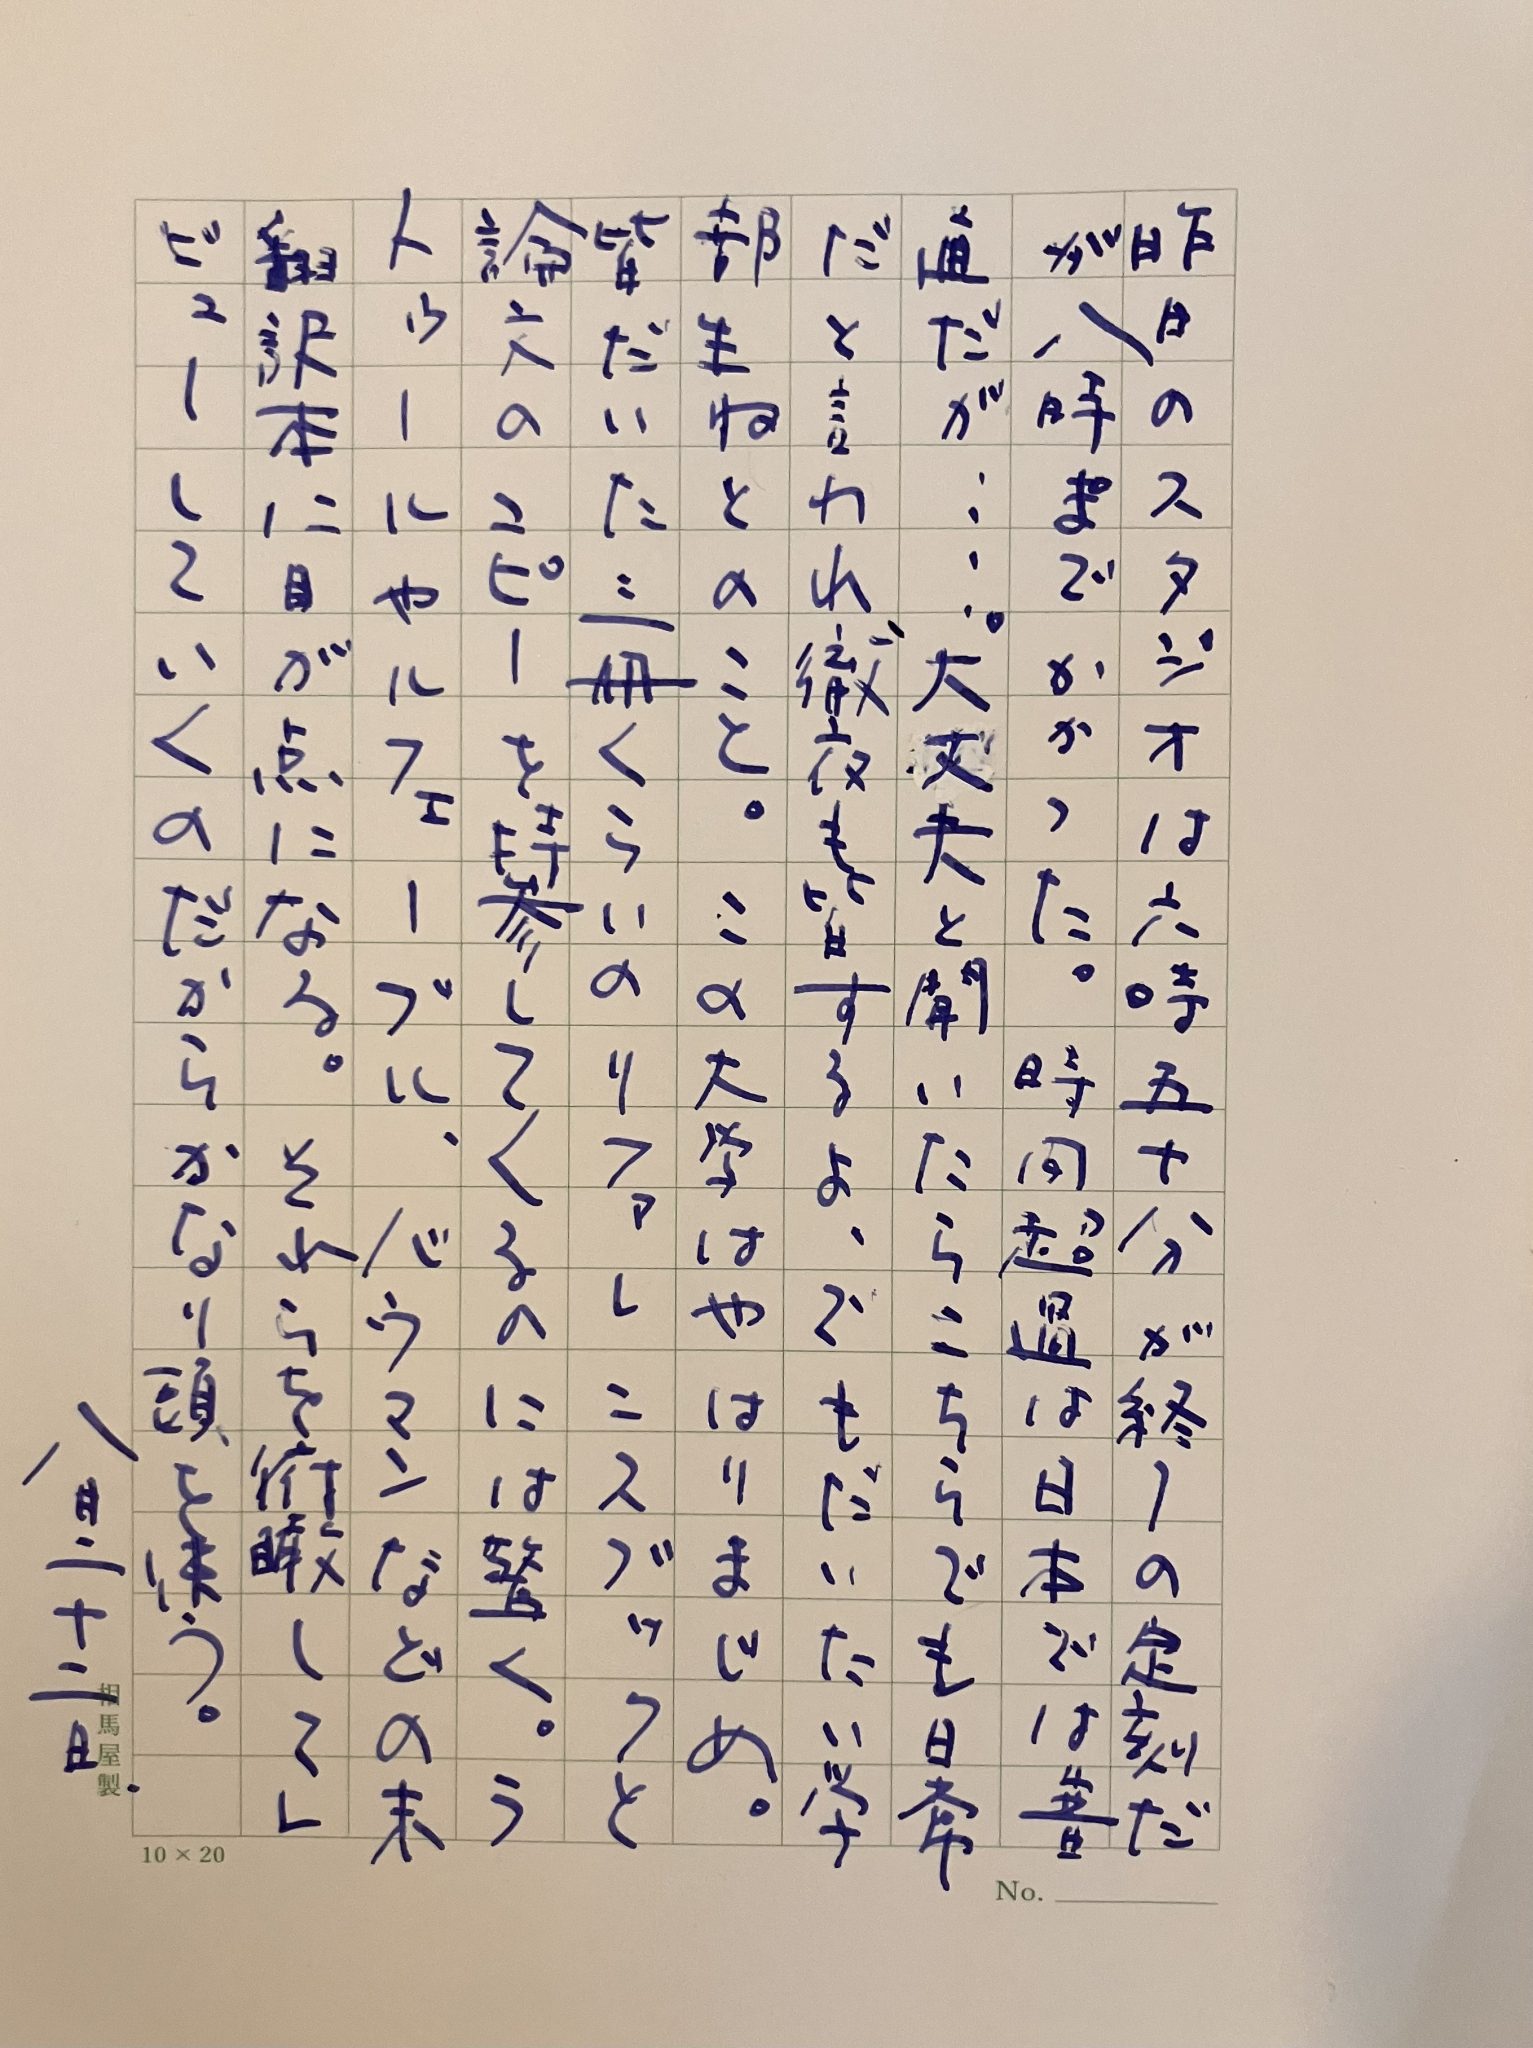 昨日のスタジオは六時五十分が終りの定刻だ
が八時までかかった。時間超過は日本では普
通だが……。大丈夫と聞いたらこちらでも日常
だと言われ徹夜も皆するよ、でもだいたい学
部生ねとのこと。この大学はやはりまじめ。
皆だいた二冊くらいのリファレンスブックと
論文のコピーを持参してくるのには驚く。ラ
トゥールやルフェーブル、バウマンなどの未
翻訳本に目が点になる。それらを俯瞰してレ
ビューしていくのだからかなり頭を使う。
八月二十二日
相馬屋製
10 × 20
No.